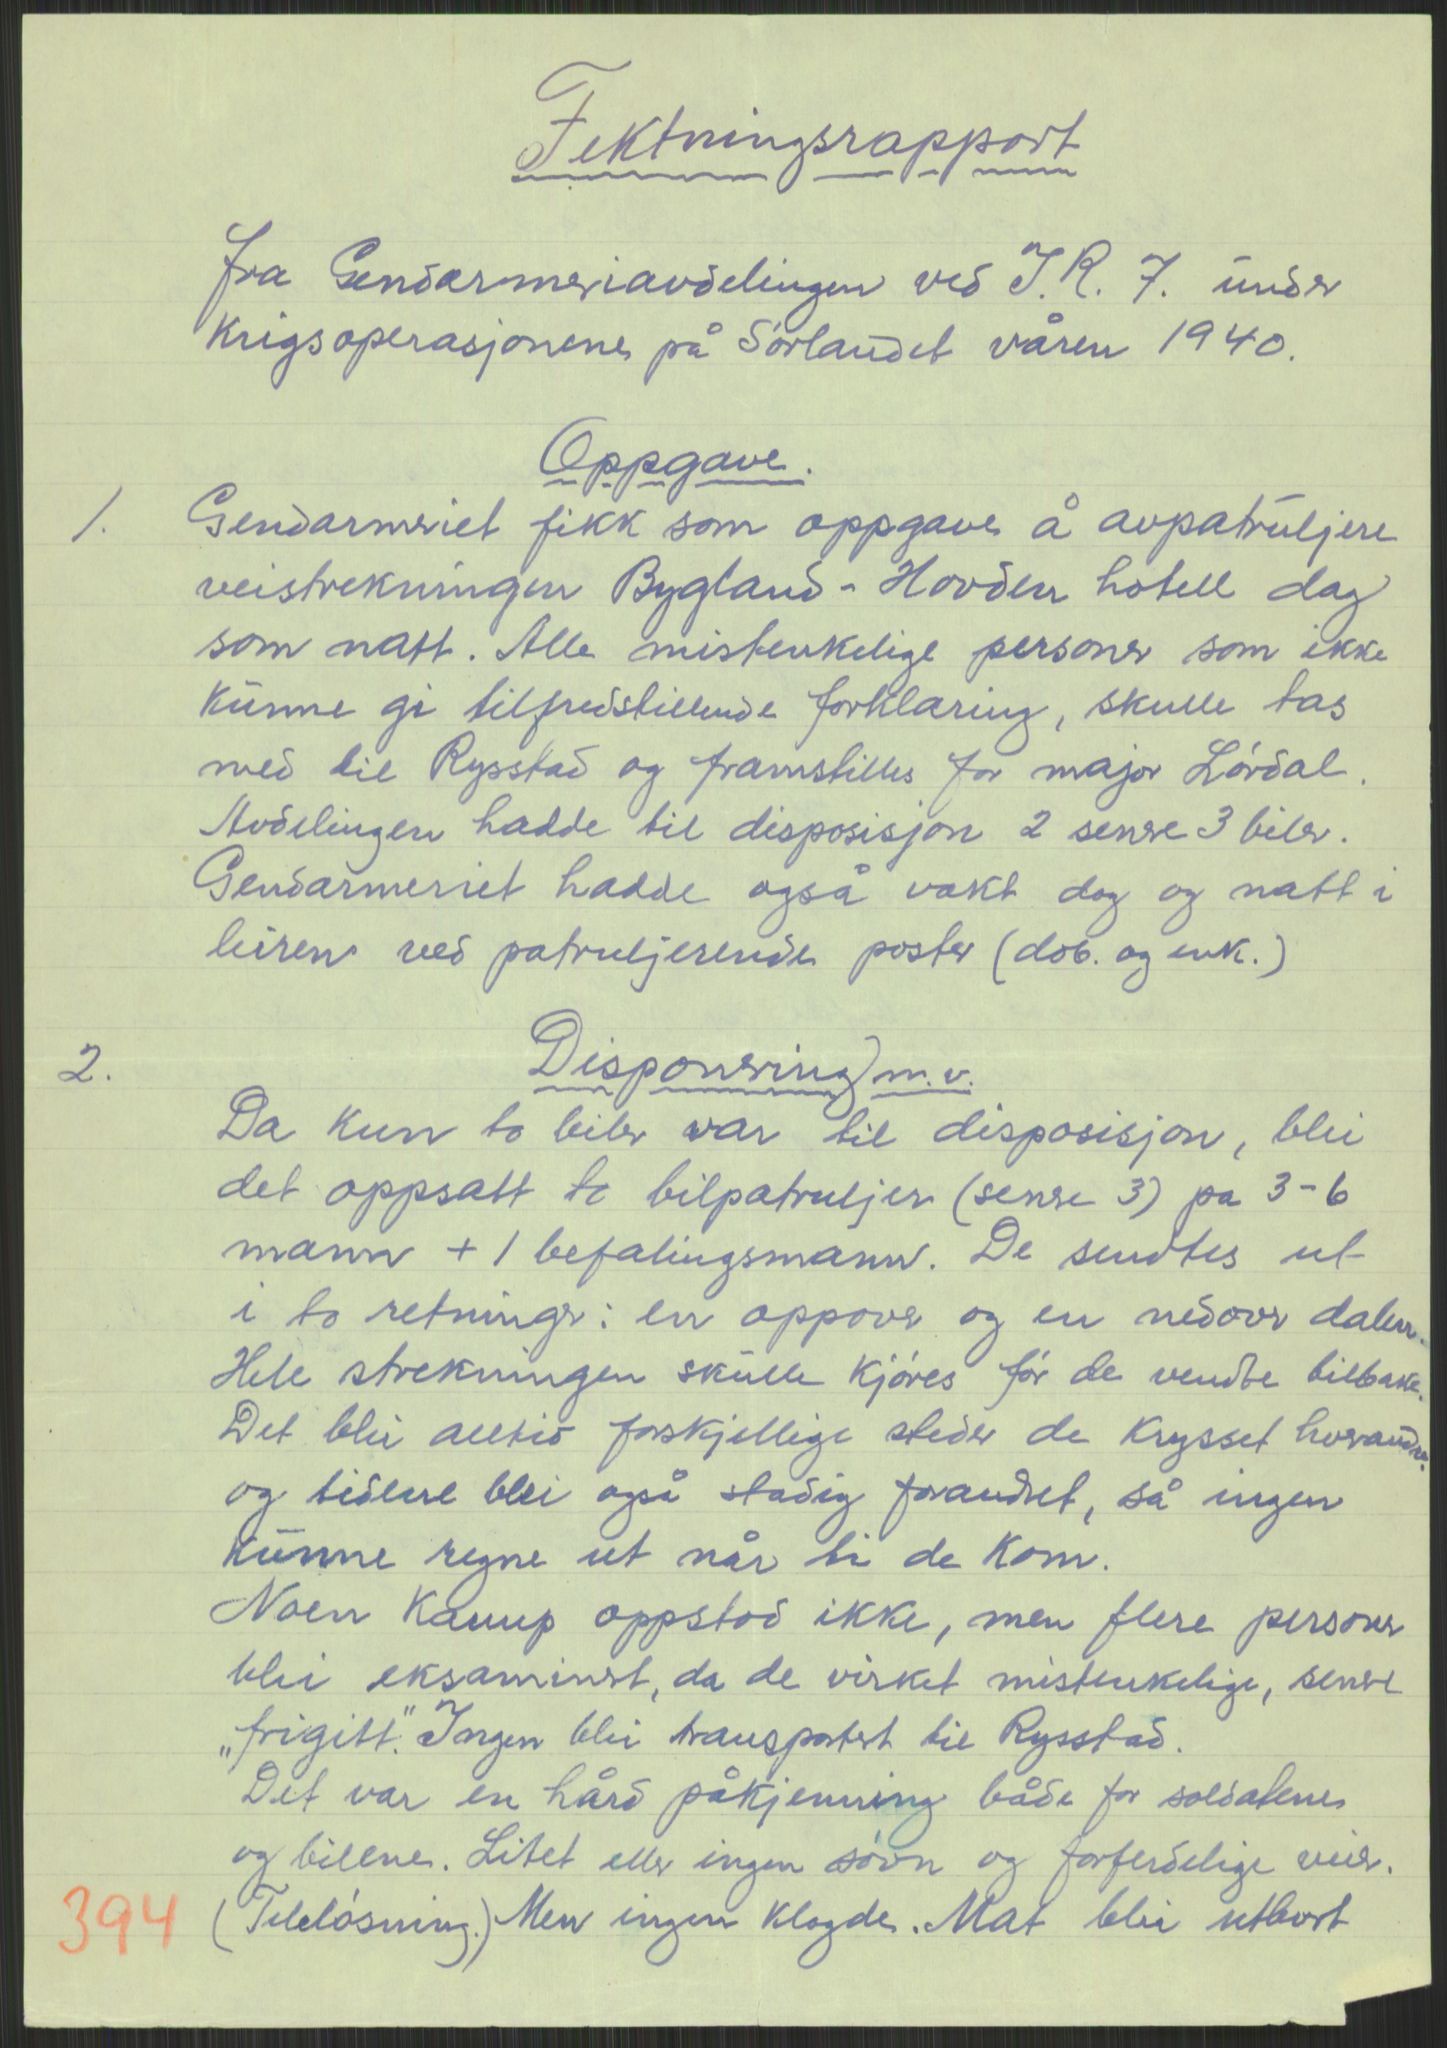 Fektningsrapport
fra Gendarmeriavdelingen ved I.R. 7. under
krigsoperasjonene på Sørlandet våren 1940.
Oppgave.
1. Gendarmeriet fikk som oppgave å avpatruljere
veistrekningen Bygland - Hovden hotell dag
som natt. Alle mistenkelige personer som ikke
kunne gi tilfredstillende forklaring, skulle tas
med til Rysstad og framstilles for major Lørdal.
Avdelingen hadde til disposisjon 2 senere 3 biler.
Gendarmeriet hadde også vakt dag og natt i
leiren ved patruljerende poster (dob. og enk.)
2. Disponering m.v.
Da kun to biler var til disposisjon, blei
det oppsatt to bilpatruljer (senere 3) pa 3-6
mann + 1 befalingsmann. De sendtes ut
i to retninger: en oppover og en nedover dalen.
Hele strekningen skulle kjøres før de vendte tilbake.
Det blei alltid forskjellige steder de krysset hverandre.
og tidene blei også stadig forandret, så ingen
kunne regne ut når ti de kom.
Noen kamp oppstod ikke, men flere personer
blei eksaminert, da de virket mistenkelige, senere
„frigitt”. Ingen blei transportert til Rysstad.
Det var en hård påkjenning både for soldatene
og bilene. Litet eller ingen søvn og forferdelige veier.
(Teleløsning.) Men ingen klagde. Mat blei utbort
394